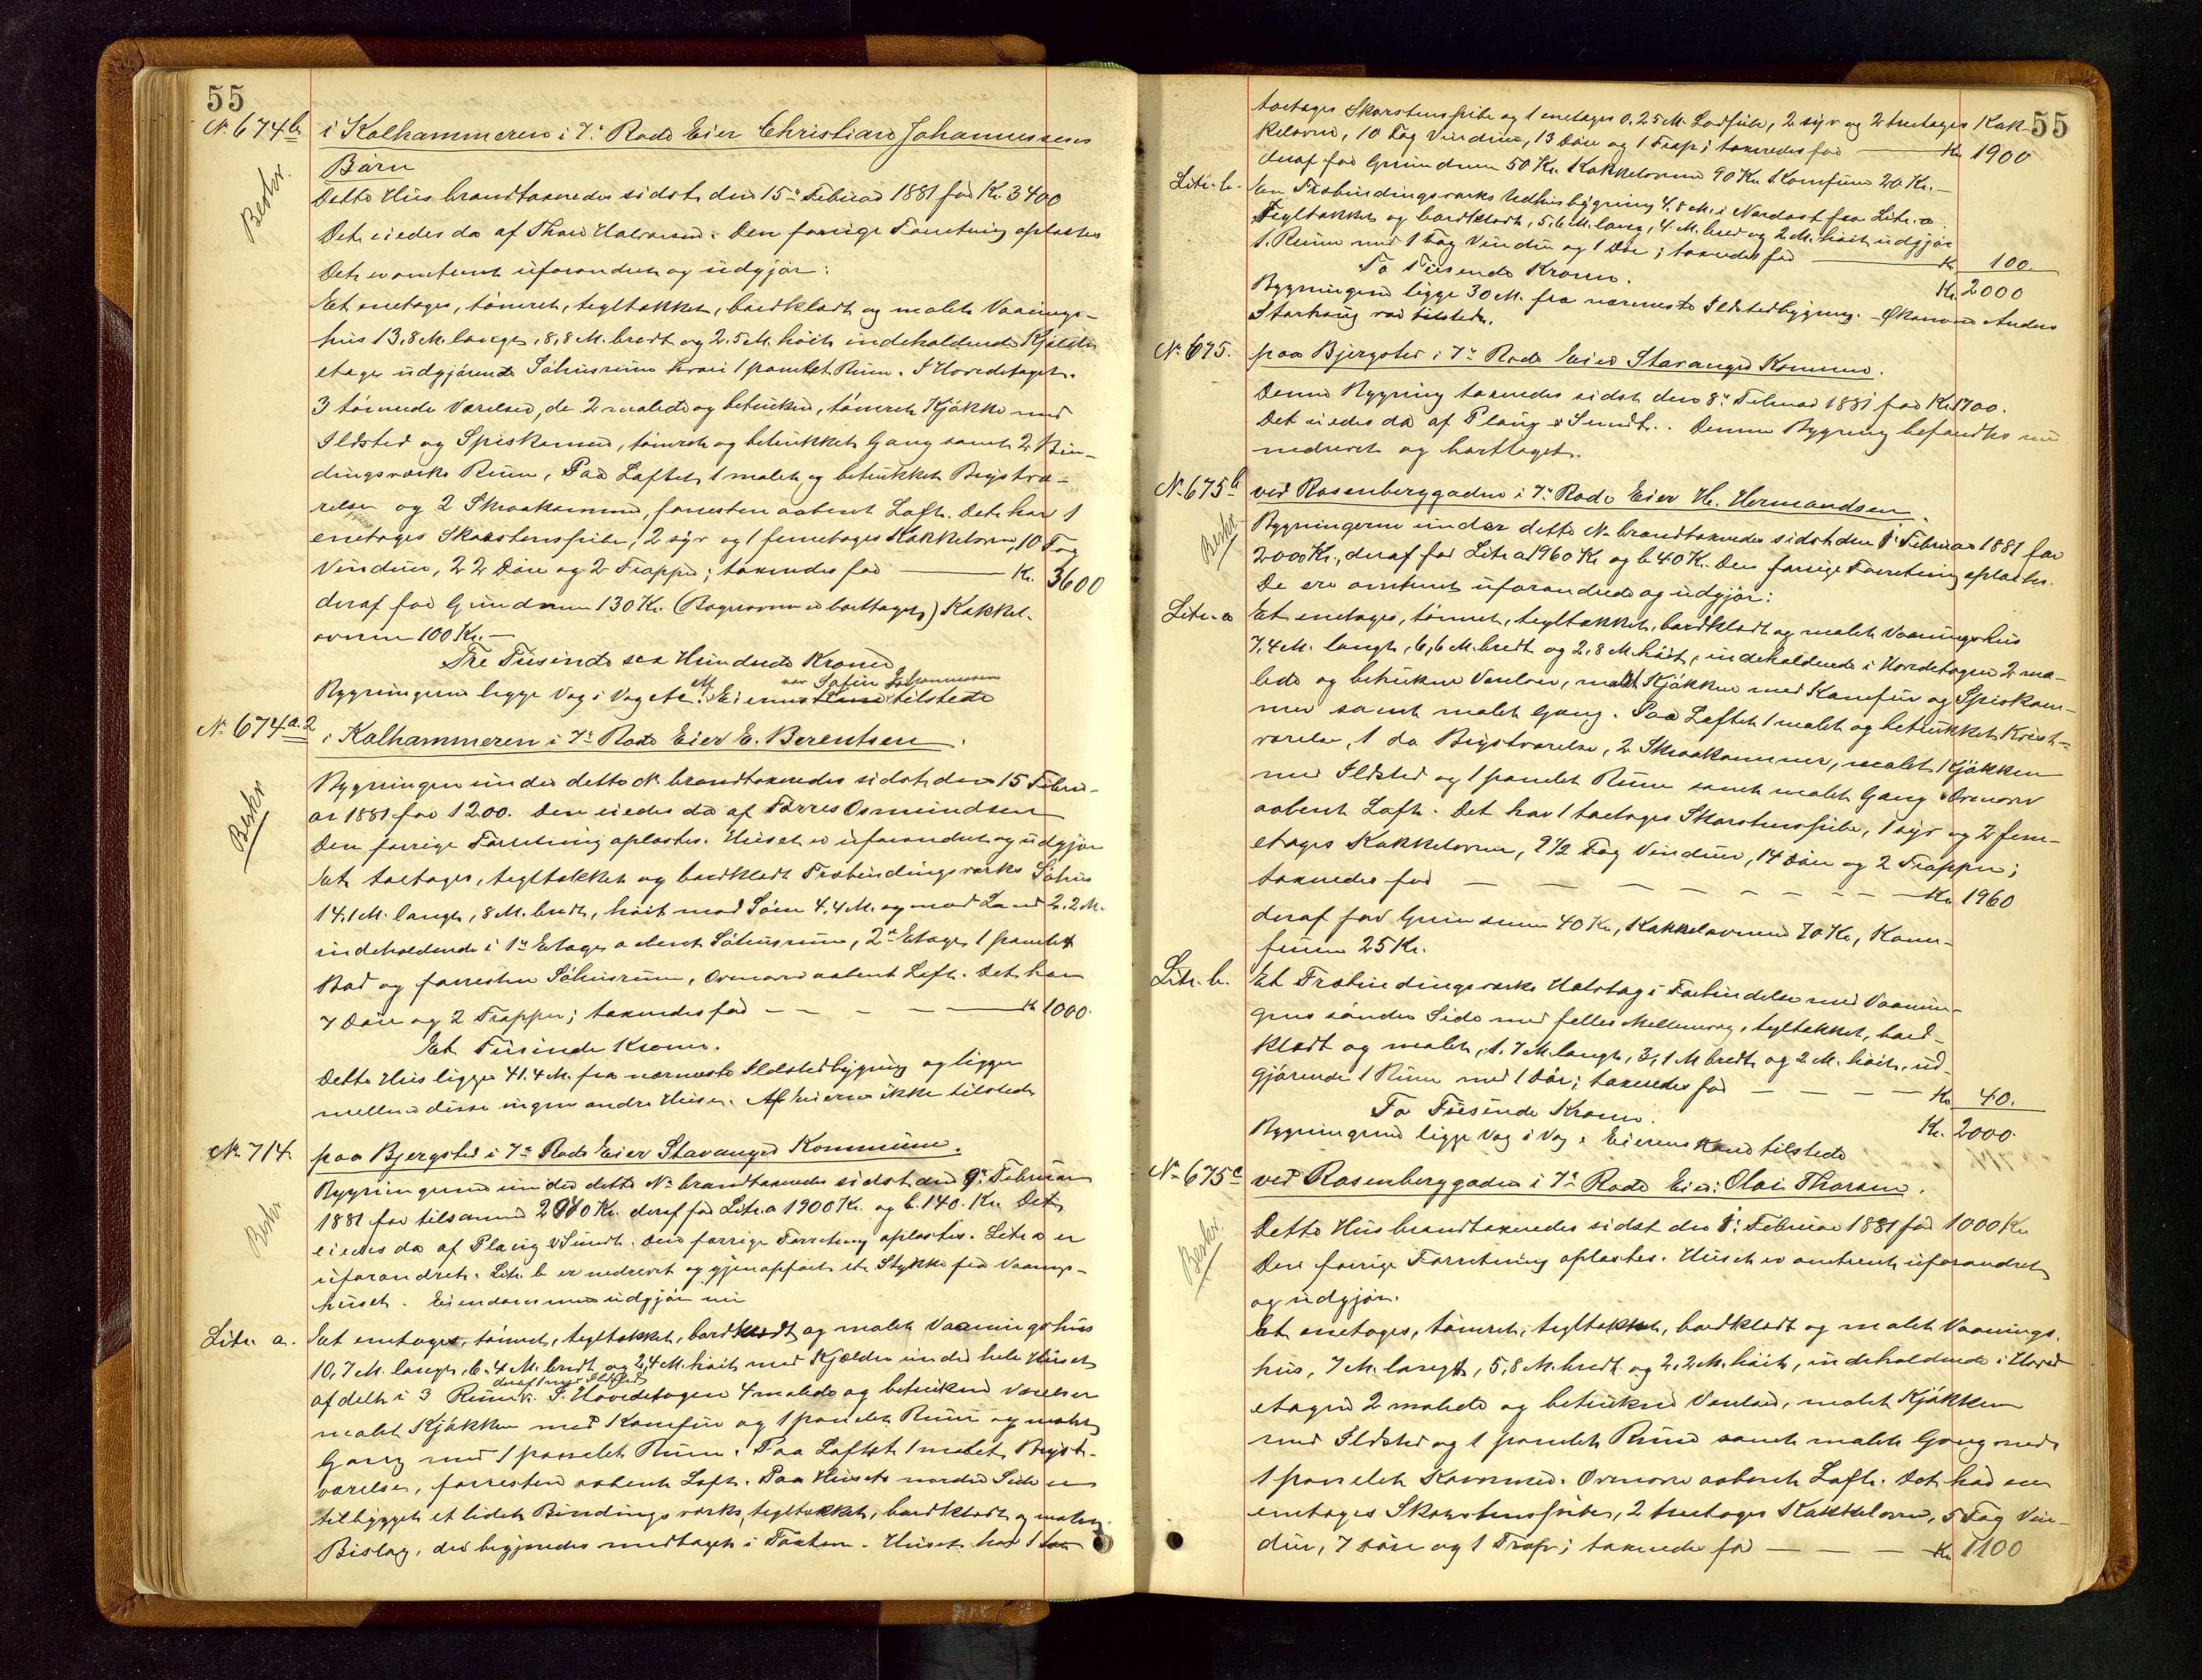 55
No 674b i Kalhammeren i 7de Rode Eier Christian Johannessens
Börn
Beskr.
Dette Hus brandtaxeredes sidst den 15de Februar 1881 for Kr. 3400
Det eiedes da af Thore Halvorsen. Den forrige Forretning oplæstes
Det er omtrent uforandret og udgjör:
Et enetages, tömret, tegltækket, bordklædt og malet Vaanings-
hus 13,8 M. langt, 8,8 M. bredt og 2.5 M. höit indeholdende Kjælder
etage udgjörende Söhusrum hvori 1 panelet Rum. I Hovedetagen
3 tömrede Værelser, de 2 malede og betrukne, tömret Kjökken med
Ildsted og Spiskammer, tömret og betrukket Gang samt 2 Bin-
dingsværks Rum, Paa Loftet 1 malet og betrukket Brystvæ-
relse og 2 Skraakammere, forresten aabent Loft. Det har 1
enetages Skorstenspibe, 2 syv og 1 femetages Kakkelovne, 10 Fag
Vinduer, 22 Döre og 2 Trapper; taxeredes for — Kr. 3600
deraf for Grundmur 130 Kr. (Bagerovnen er borttaget) Kakkel-
ovnene 100 Kr. —
Tre Tusinde sex Hundrede Kroner
Bygningerne ligge Væg i Væg Af Eierne var Sofie Johannessen tilstede
No 674a.2 i Kalhammeren i 7de Rode Eier E. Berentsen.
Beskr
Bygningen under dette No brandtaxeredes sidst den 15 Febru-
ar 1881 for 1200. Den eiedes da af Tørres Osmundsen
Den forrige Forretning oplæstes. Huset er uforandret og udgjör
Et toetages, tegltækket og bordklædt Træbindingsværks Söhus
14.1 M. langt, 8 M. bredt, höit mod Söen 4.4 M. og mod Land 2.2 M.
indeholdende i 1ste Etage aabent Söhusrum, 2den Etage 1 panelet
Bod og forresten Söhusrum, ovenover aabent Loft. Det har
7 Döre og 2 Trapper; taxeredes for — — — — Kr 1000.
Et Tusinde Kroner.
Dette Hus ligger 41.4 M. fra nærmeste Ildstedbygning og ligger
mellem disse ingen andre Huse. Af Eierne ikke tilstede
No 714. paa Bjergsted i 7de Rode Eier Stavanger Kommune.
Beskr.
Bygningerne under dette No brandtaxeredes sidst den 9de Februar
1881 for tilsammen 2040 Kr. deraf for Litr. a 1900 Kr. og b. 140. Kr. Det
eiedes da af Plaug & Sundt. Den forrige Forretning oplæstes. Litr a er
uforandret. Litr. b er nedrevet og gjenopfört et Stykke fra Vaanings-
huset. Eiendommen udgjör nu
Litr. a. Et enetages, tömret, tegltækket, bordklædt og malet Vaaningshus
10,7 M. langt, 6.4 M. bredt og 2,4 M. höit med Kjælder under hele Huset
afdelt i 3 Rum deraf 1 med Ildsted. I Hovedetagen 4 malede og betrukne Værelser
malet Kjökken med Komfur og 1 panelet Rum og malet
Gang med 1 panelet Rum. Paa Loftet 1 malet Bryst-
værelse, forresten aabent Loft. Paa Husets nordre Side er
tilbygget et lidet Bindingsværks, tegltækket, bordklædt og malet
Bislag, der begjæredes medtaget i Taxten. Huset har 1 toe
55
toetages Skorstenspibe og 1 enetages 0.25 M. Lodpibe, 2 syv og 2 treetages Kak-
kelovne, 10 Fag Vinduer, 13 Döre og 1 Trap; taxeredes for — Kr 1900
deraf for Grundmur 50 Kr. Kakkelovne 90 Kr. Komfuren 20 Kr. —
Litr. b. En Træbindingsværks Udhusbygning 4,8 M. i Nordost fra Litr. a
Tegltækket og bordklædt, 5,6 M. lang, 4 M. bred og 2 M. höit udgjör
1. Rum med 1 Fag Vinduer og 1 Dör; taxeredes for — Kr 100.
To Tusende Kroner. Kr. 2000
Bygningerne ligge 30 M. fra nærmeste Ildstedbygning. Økonom Anders
Storhaug var tilstede.
No 675. paa Bjergsted i 7de Rode Eier Stavanger Kommune.
Denne Bygning taxeredes sidst den 8de Februar 1881 for Kr. 1700.
Det eiedes da af Plaug & Sundt. Denne Bygning befandtes nu
nedrevet og borttaget.
No 675b ved Rosenberggaden i 7de Rode Eier H. Hermandsen.
Beskr
Bygningerne under dette No brandtaxeredes sidst den 8de Februar 1881 for
2000 Kr., deraf for Litr a 1960 Kr og b 40 Kr. Den forrige Forretning oplæstes.
De ere omtrent uforandrede og udgjör:
Litr. a Et enetages, tömret, tegltækket, bordklædt og malet Vaaningshus
7,4 M. langt, 6,6 M. bredt og 2,8 M. höit, indeholdende i Hovedetagen 2 ma-
lede og betrukne Værelser, malet Kjökken med Komfur og Spiskam-
mer samt malet Gang. Paa Loftet 1 malet og betrukket Kvist-
værelse, 1 do Brystværelse, 2 Skraakammer, malet Kjökken
med Ildsted og 1 panelet Rum samt malet Gang Ovenover
aabent Loft. Det har 1 toetages Skorstenspibe, 1 syv og 2 fem-
etages Kakkelovne, 9½ Fag Vinduer, 14 Döre og 2 Trapper;
taxeredes for — — — — — — — Kr. 1960
deraf for Grundmur 40 Kr., Kakkelovnene 70 Kr., Kom-
furen 25 Kr.
Litr. b. Et Træbindingsværks Halvtag i Forbindelse med Vaanin-
gens söndre Side med fælles Mellemvæg, tegltækket, bord-
klædt og malet, 1.7 M. langt, 3,1 M bredt og 2 M. höit, ud-
gjörende 1 Rum med 1 Dör; taxeredes for — — — Kr 40.
To Tusende Kroner. Kr. 2000
Bygningerne ligge Væg i Væg. Eierens Kone tilstede
No 675c ved Rosenberggaden i 7de Rode Eier: Olai Thorsen.
Beskr.
Dette Hus brandtaxeredes sidst den 8de Februar 1881 for 1000 Kr
Den forrige Forretning oplæstes. Huset er omtrent uforandret
og udgjör.
Et enetages, tömret, tegltækket, bordklædt og malet Vaanings-
hus, 7 M. langt, 5,8 M. bredt og 2,2 M. höit, indeholdende i Hoved
etagen 2 malede og betrukne Værelser, malet Kjökken
med Ildsted og 1 panelet Rum samt malet Gang med
1 panelet Kammer. Ovenover aabent Loft. Det har en
enetages Skorstenspibe, 2 treetages Kakkelovne, 5 Fag Vin-
duer, 7 Döre og 1 Trap; taxeredes for — — — Kr 1100